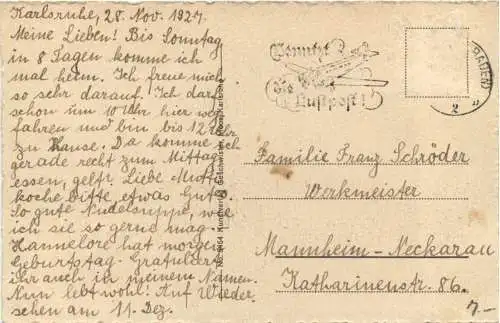 Karlsruhe, 28. Nov. 1927.
Meine Lieben! Bis Sonntag
in 8 Tagen komme ich
mal heim. Ich freue mich
so sehr darauf. Ich darf
schon um 10 Uhr hier weg
fahren und bin bis 12 Uhr
zu Hause. Da komme ich
gerade recht zum Mittag
essen, gelt. Liebe Mutter
koche bitte etwas Gutes
So gute Nudelsuppe, wie
ich sie so gerne mag.
Hannelore hat morgen
Geburtstag. Gratuliert
ihr auch in meinem Namen.
Nun lebt wohl! Auf Wieder
sehen am 11. Dez.
Kunstverlag
Benutzt
die
Luftpost!
(BADEN)
2
Familie Franz Schröder
Werkmeister
Mannheim-Neckarau
Katharinenstr. 86.
7.-